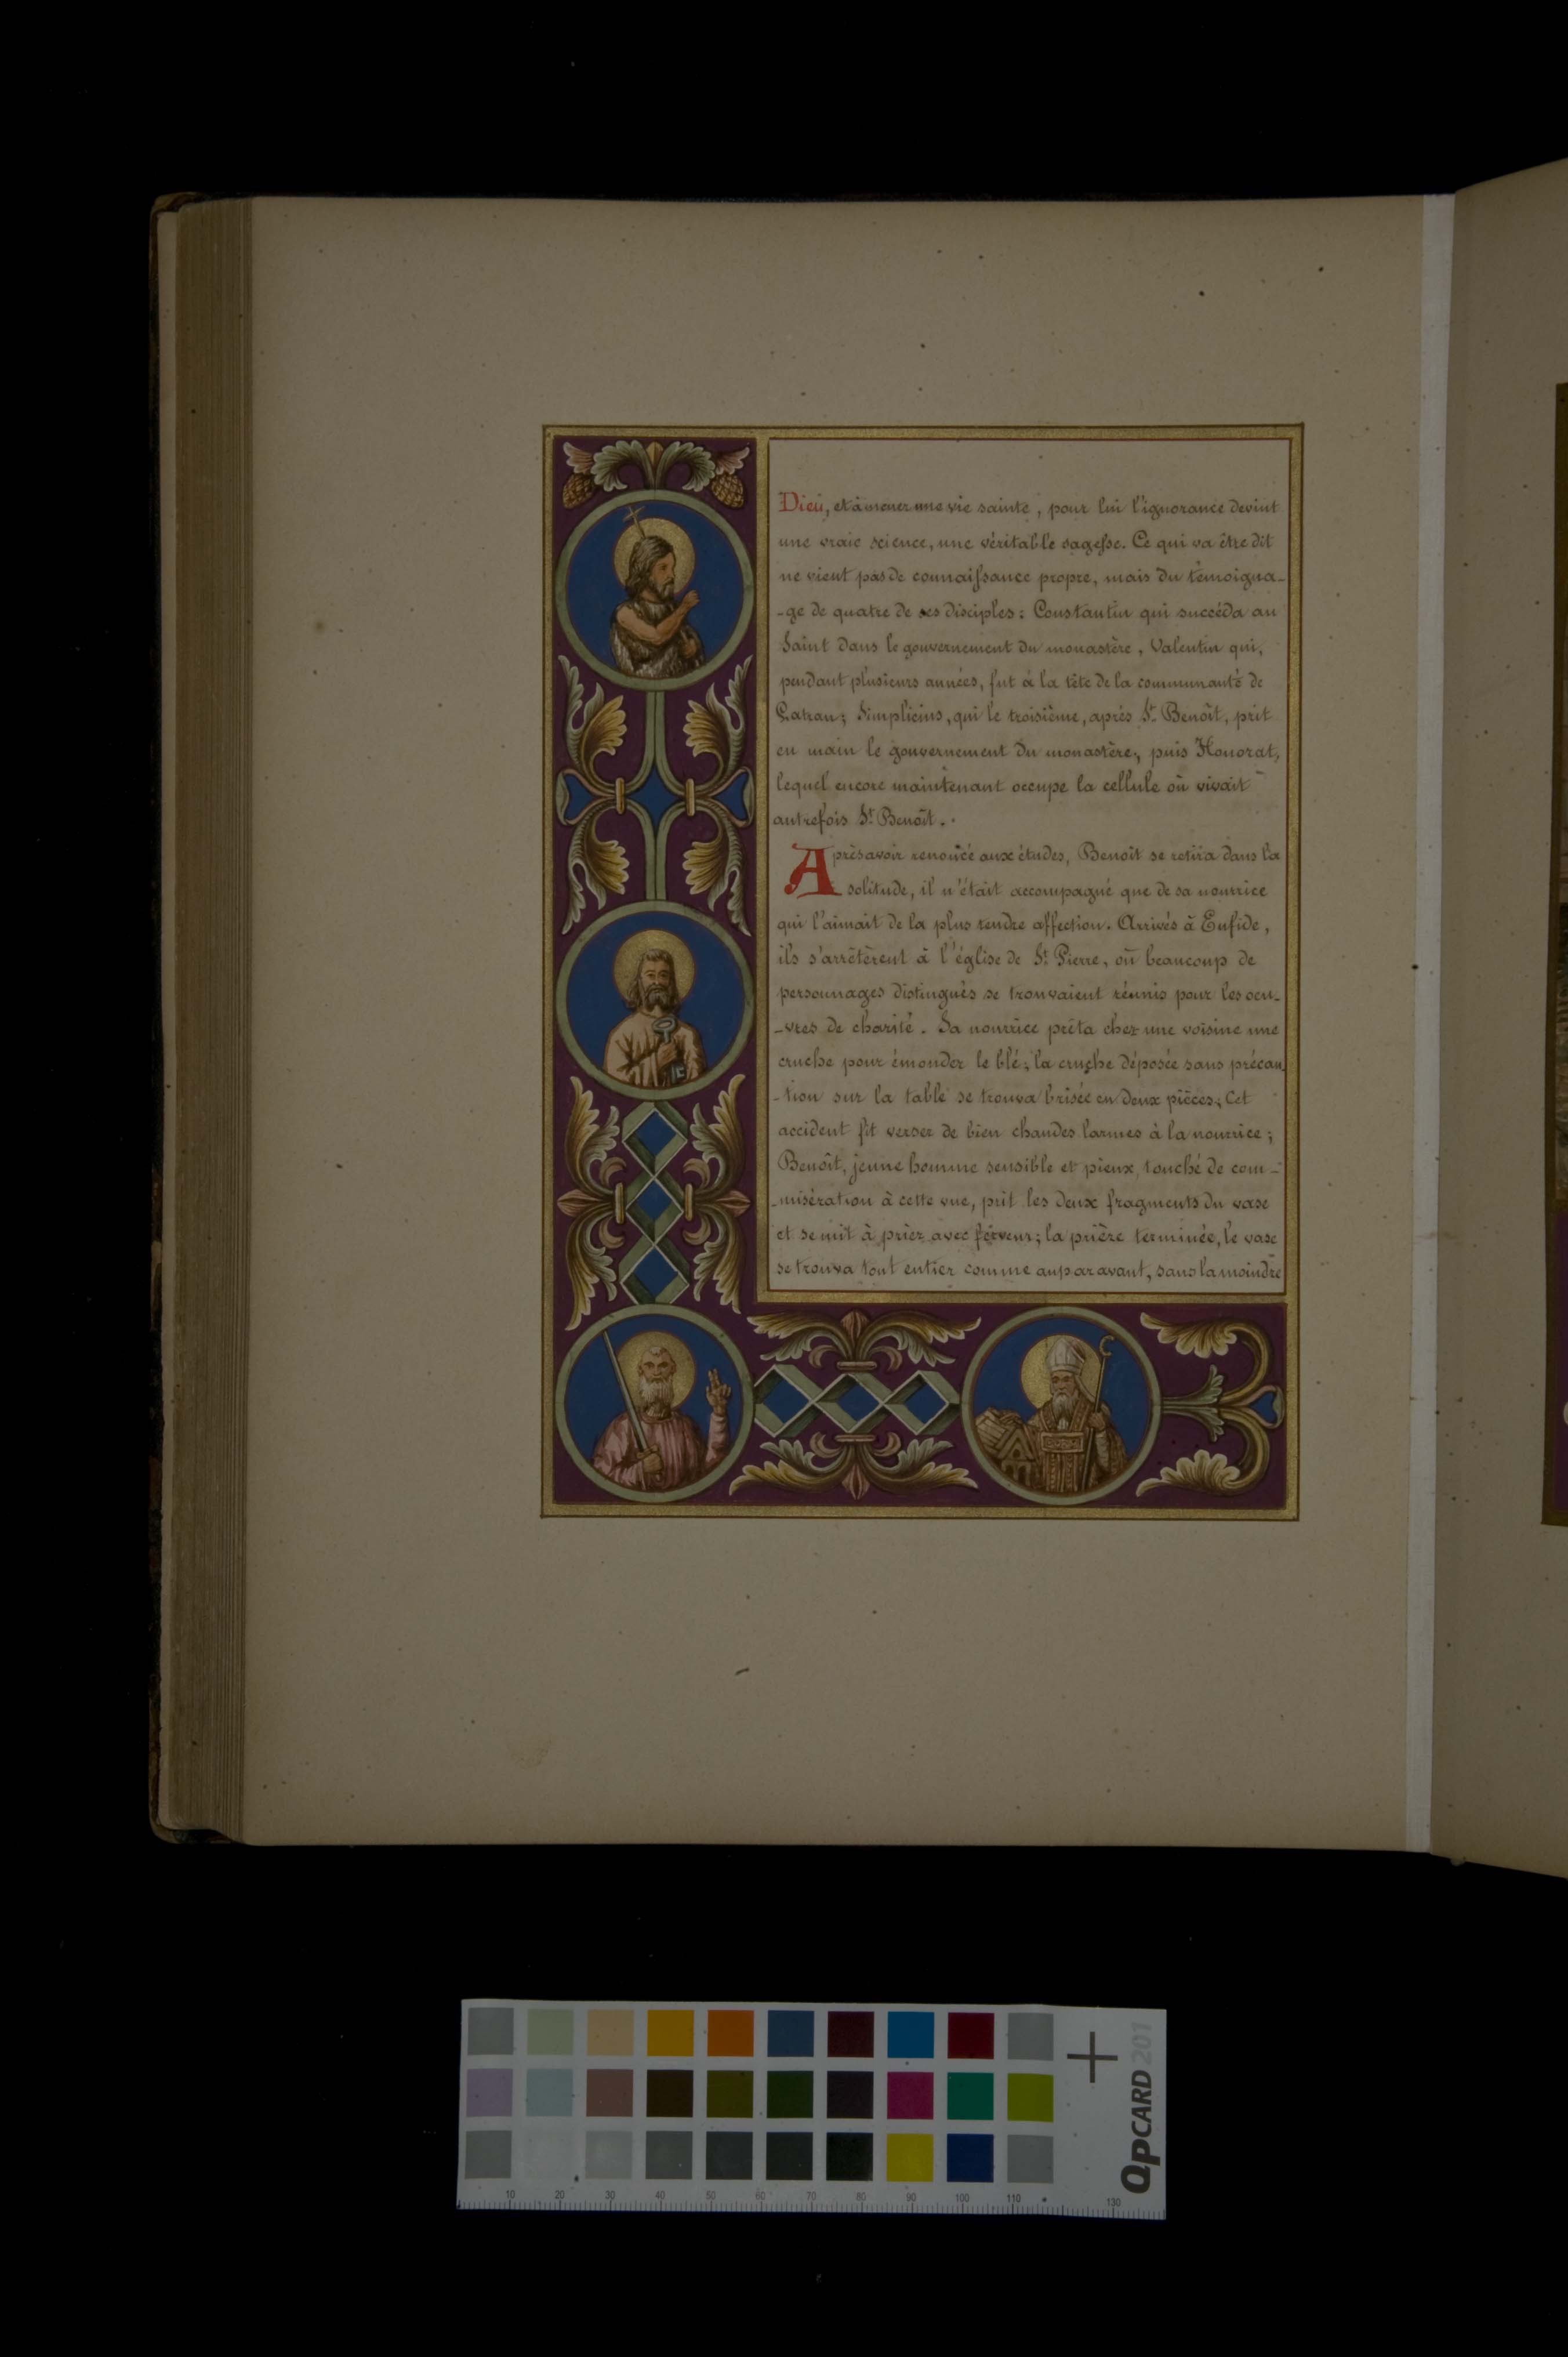 Dieu, et à mener une vie sainte, pour lui l'ignorance devint
une vraie science, une véritable sagesse. Ce qui va être dit
ne vient pas de connaissance propre, mais du témoigna-
-ge de quatre de ses disciples : Constantin qui succéda au
Saint dans le gouvernement du monastère, Valentin qui,
pendant plusieurs années, fut à la tête de la communauté de
Latran; Simplicius, qui le troisième, après St. Benoît, prit
en main le gouvernement du monastère, puis Honorat,
lequel encore maintenant occupe la cellule où vivait
autrefois St. Benoît.
Après avoir renoncé aux études, Benoît se retira dans la
solitude, il n'était accompagné que de sa nourrice
qui l'aimait de la plus tendre affection. Arrivés à Enfide,
ils s'arrêtèrent à l'église de St. Pierre, où beaucoup de
personnages distingués se trouvaient réunis pour les oeu-
-vres de charité. Sa nourrice prêta chez une voisine une
cruche pour émonder le blé; la cruche déposée sans précau-
-tion sur la table se trouva brisée en deux pièces; Cet
accident fit verser de bien chaudes larmes à la nourrice;
Benoît, jeune homme sensible et pieux, touché de com-
-misération à cette vue, prit les deux fragments du vase
et se mit à prier avec ferveur; la prière terminée, le vase
se trouva tout entier comme auparavant, sans la moindre
QPCARD 201
10 20 30 40 50 60 70 80 90 100 110 130